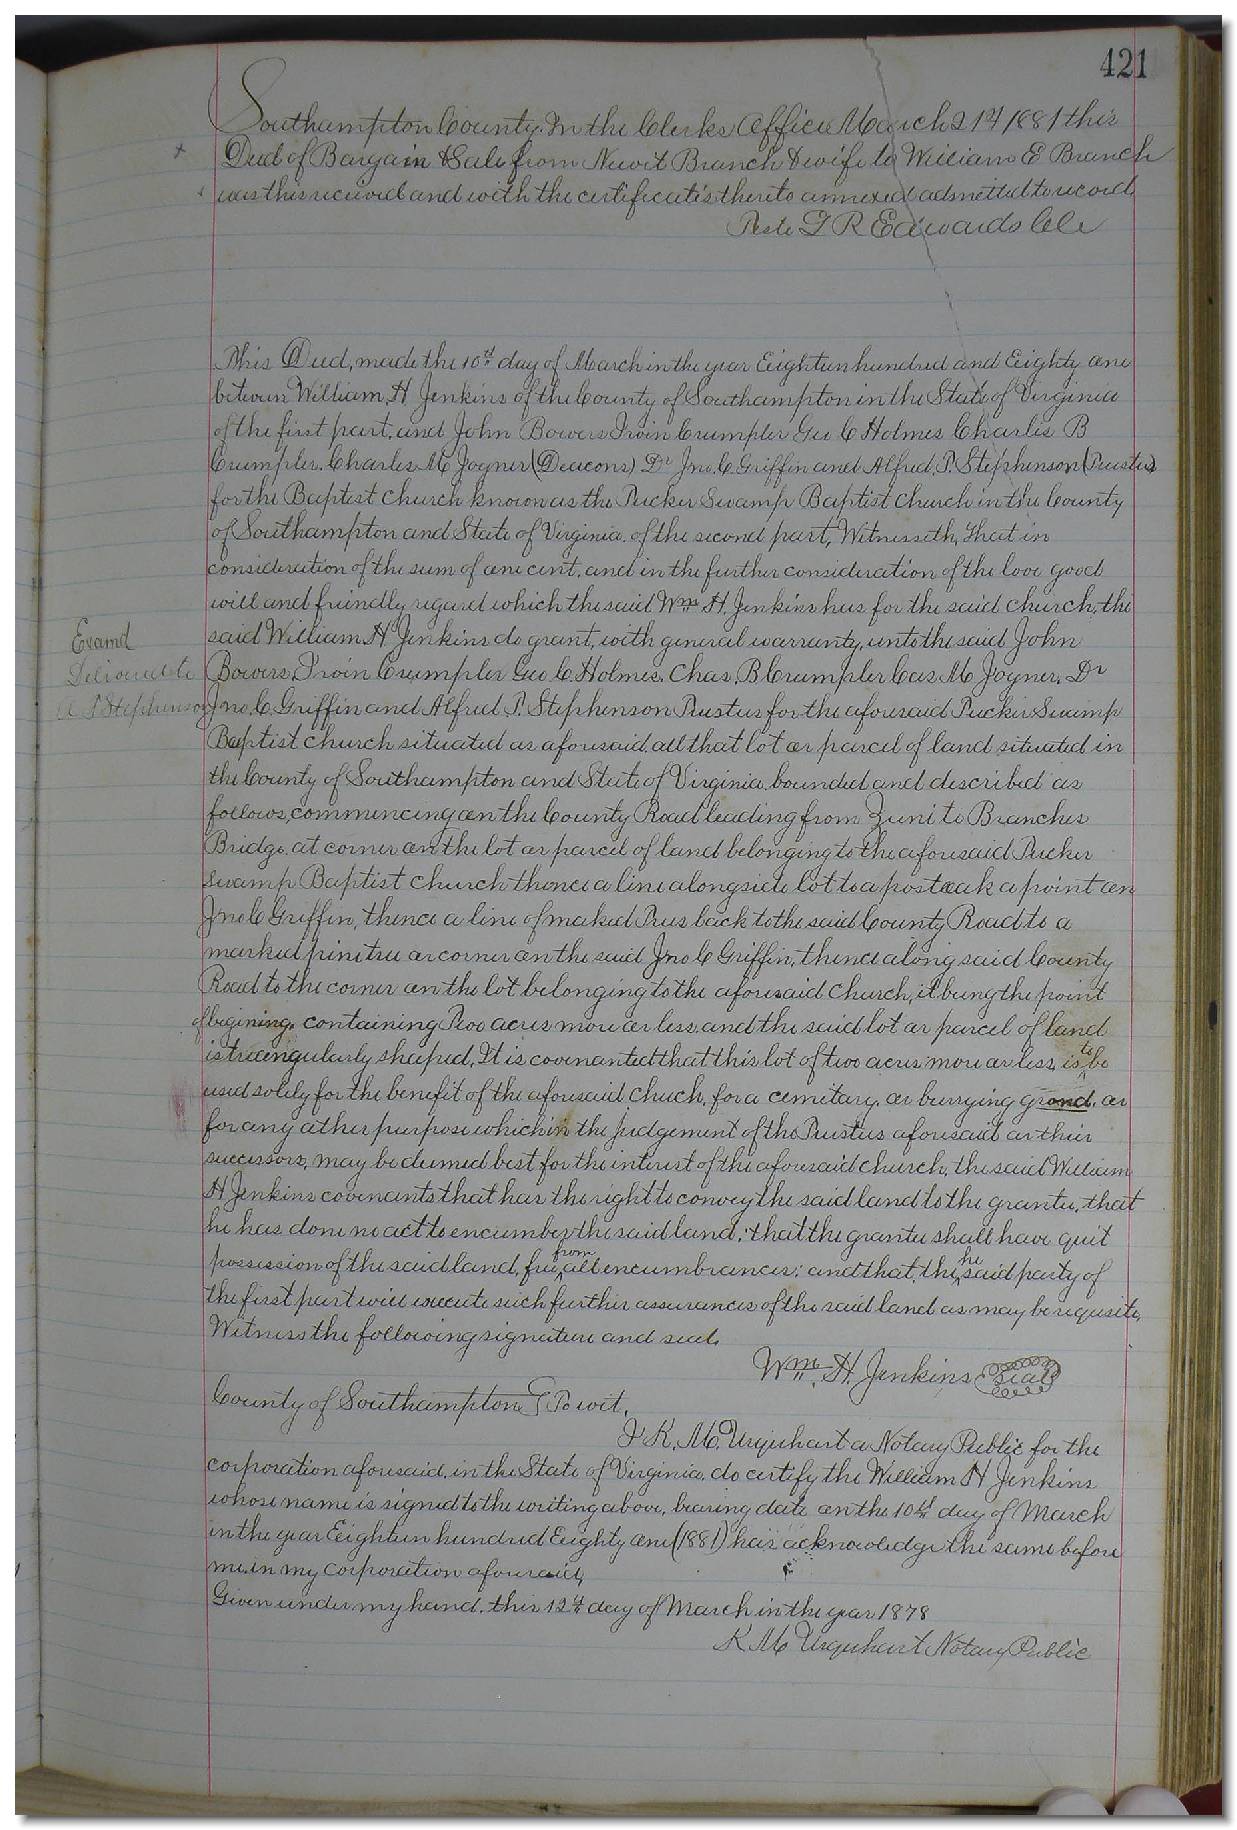 421
Southampton County. In the Clerks Office March 21st 1881 this
Deed of Bargain & Sale from Newit Branch & wife to William E Branch
was this received and with the certificates thereto annexed admitted to record
Teste L R Edwards Clk
This Deed, made the 10th day of March in the year Eighteen hundred and Eighty one
between William H Jenkins of the County of Southampton in the State of Virginia
of the first part, and John Bowers Irvin Crumpler Geo C Holmes Charles B
Crumpler. Charles M Joyner (Deacons) Dr Jno. C. Griffin and Alfred P. Stephenson (Trustees)
for the Baptist Church known as the Tucker Swamp Baptist church in the County
of Southampton and State of Virginia. of the second part, Witnesseth, That in
consideration of the sum of one cent. and in the further consideration of the love good
will and friendly regard which the said Wm H. Jenkins has for the said church, the
said William H Jenkins do grant, with general warranty, unto the said John
Bowers. Irvin Crumpler Geo C. Holmes. Chas. B Crumpler Cas M Joyner. Dr
Jno. C. Griffin and Alfred P. Stephenson Trustees for the aforesaid Tucker Swamp
Examd
Delivered to
A P Stephenson
Baptist church situated as aforesaid, all that lot or parcel of land situated in
the County of Southampton and State of Virginia. bounded and described as
follows, commencing on the County Road leading from Zuni to Branches
Bridge. at corner on the lot or parcel of land belonging to the aforesaid Tucker
Swamp Baptist church thence a line alongside lot to a postoak a point on
Jno C Griffin, thence a line of maked Trees back to the said County Road to a
marked pine tree or corner on the said Jno C Griffin, thence along said County
Road to the corner on the lot belonging to the aforesaid church, it being the point
of begining. containing Two acres more or less. and the said lot or parcel of land
is treangularly shaped. It is covenanted that this lot of two acres more or less. is to be
used solely for the benefit of the aforesaid chuch. for a cemitary. or burrying grond. or
for any other purpose which in the Judgement of the Trustees aforesaid or thier
successors, may be deemed best for the interest of the aforesaid church. the said William
H Jenkins covenants that has the right to convey the said land to the grantee, that
he has done no act to encumber the said land; that the grantee shall have quit
possession of the said land, free from all encumbrances; and that, the he said party of
the first part will execute such further assurances of the said land as may be requisite.
Witness the following signature and seal.
Wm. H. Jenkins Seal
County of Southampton To wit,
I K. M. Urquhart a Notary Public for the
corporation aforesaid. in the State of Virginia. do certify the William H Jenkins
whose name is signed to the writing above, bearing date on the 10th day of March
in the year Eeighteen hundred Eeighty one (1881) has acknowledge the same before
me. in my corporation aforesaid,
Given under my hand. this 12th day of March in the year 1878
K M Urquhart Notary Public